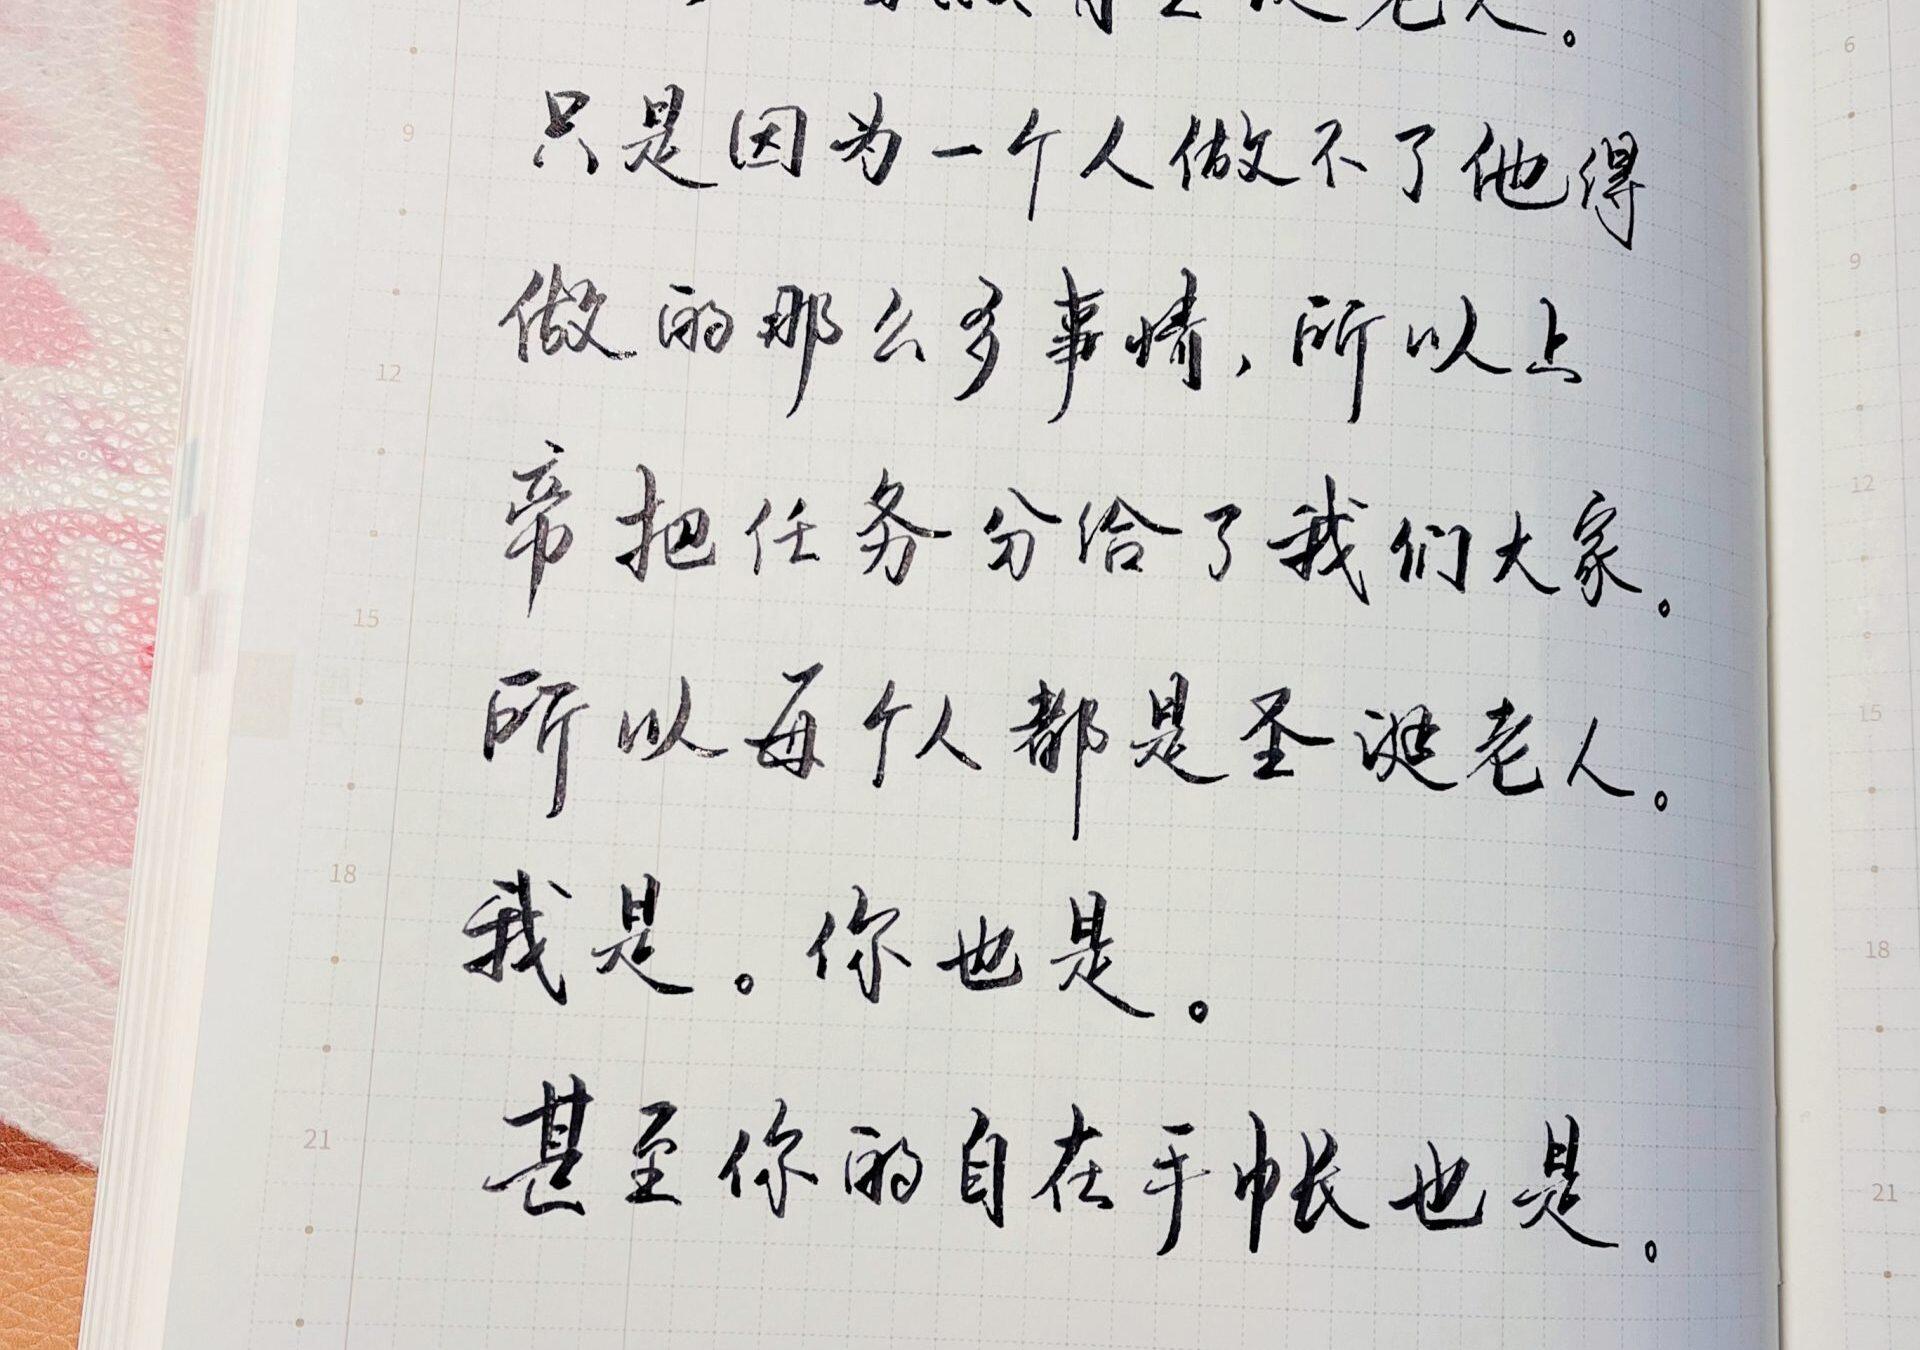 圣诞老人。
只是因为一个人做不了他得
做的那么多事情，所以上
帝把任务分给了我们大家。
所以每个人都是圣诞老人。
我是。你也是。
甚至你的自在手帐也是。
9
12
15
18
21
6
9
12
15
18
21